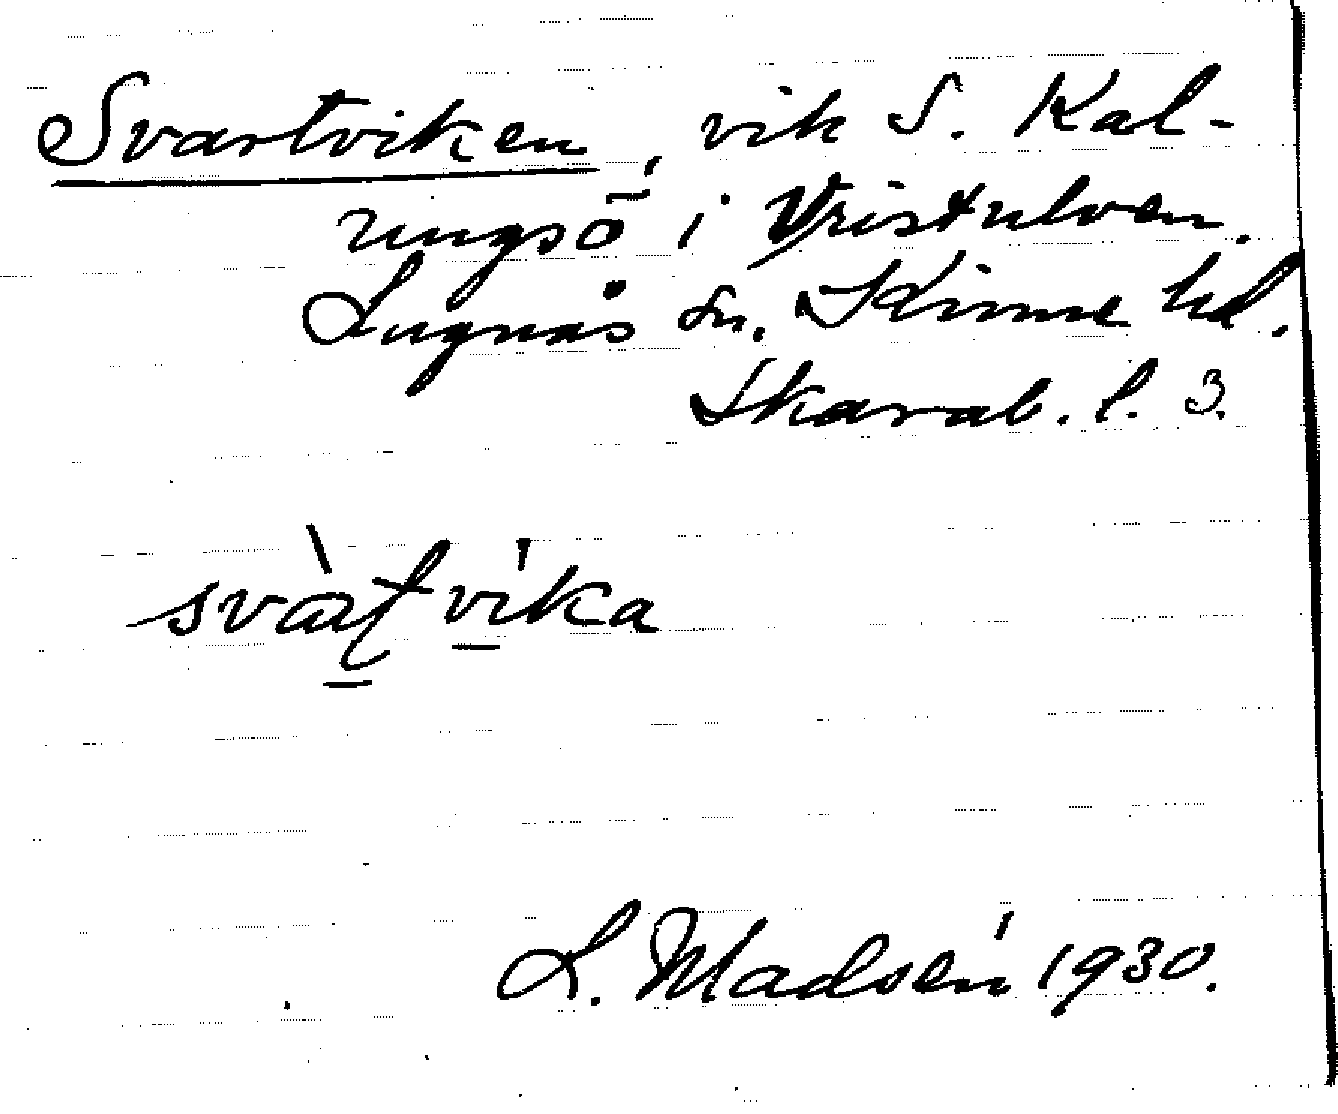 Svartviken, vik S. Kal-
ungsö i Vristulven.
Lugnås sn. Kinne hd.
Skarab. l. 3.
svàʈvı̍ka
L. Madsén 1930.